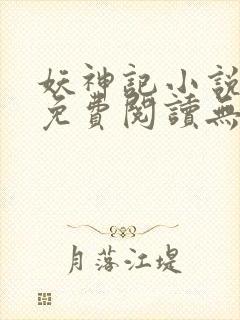 妖神記小說
免費閱讀無
月落江堤